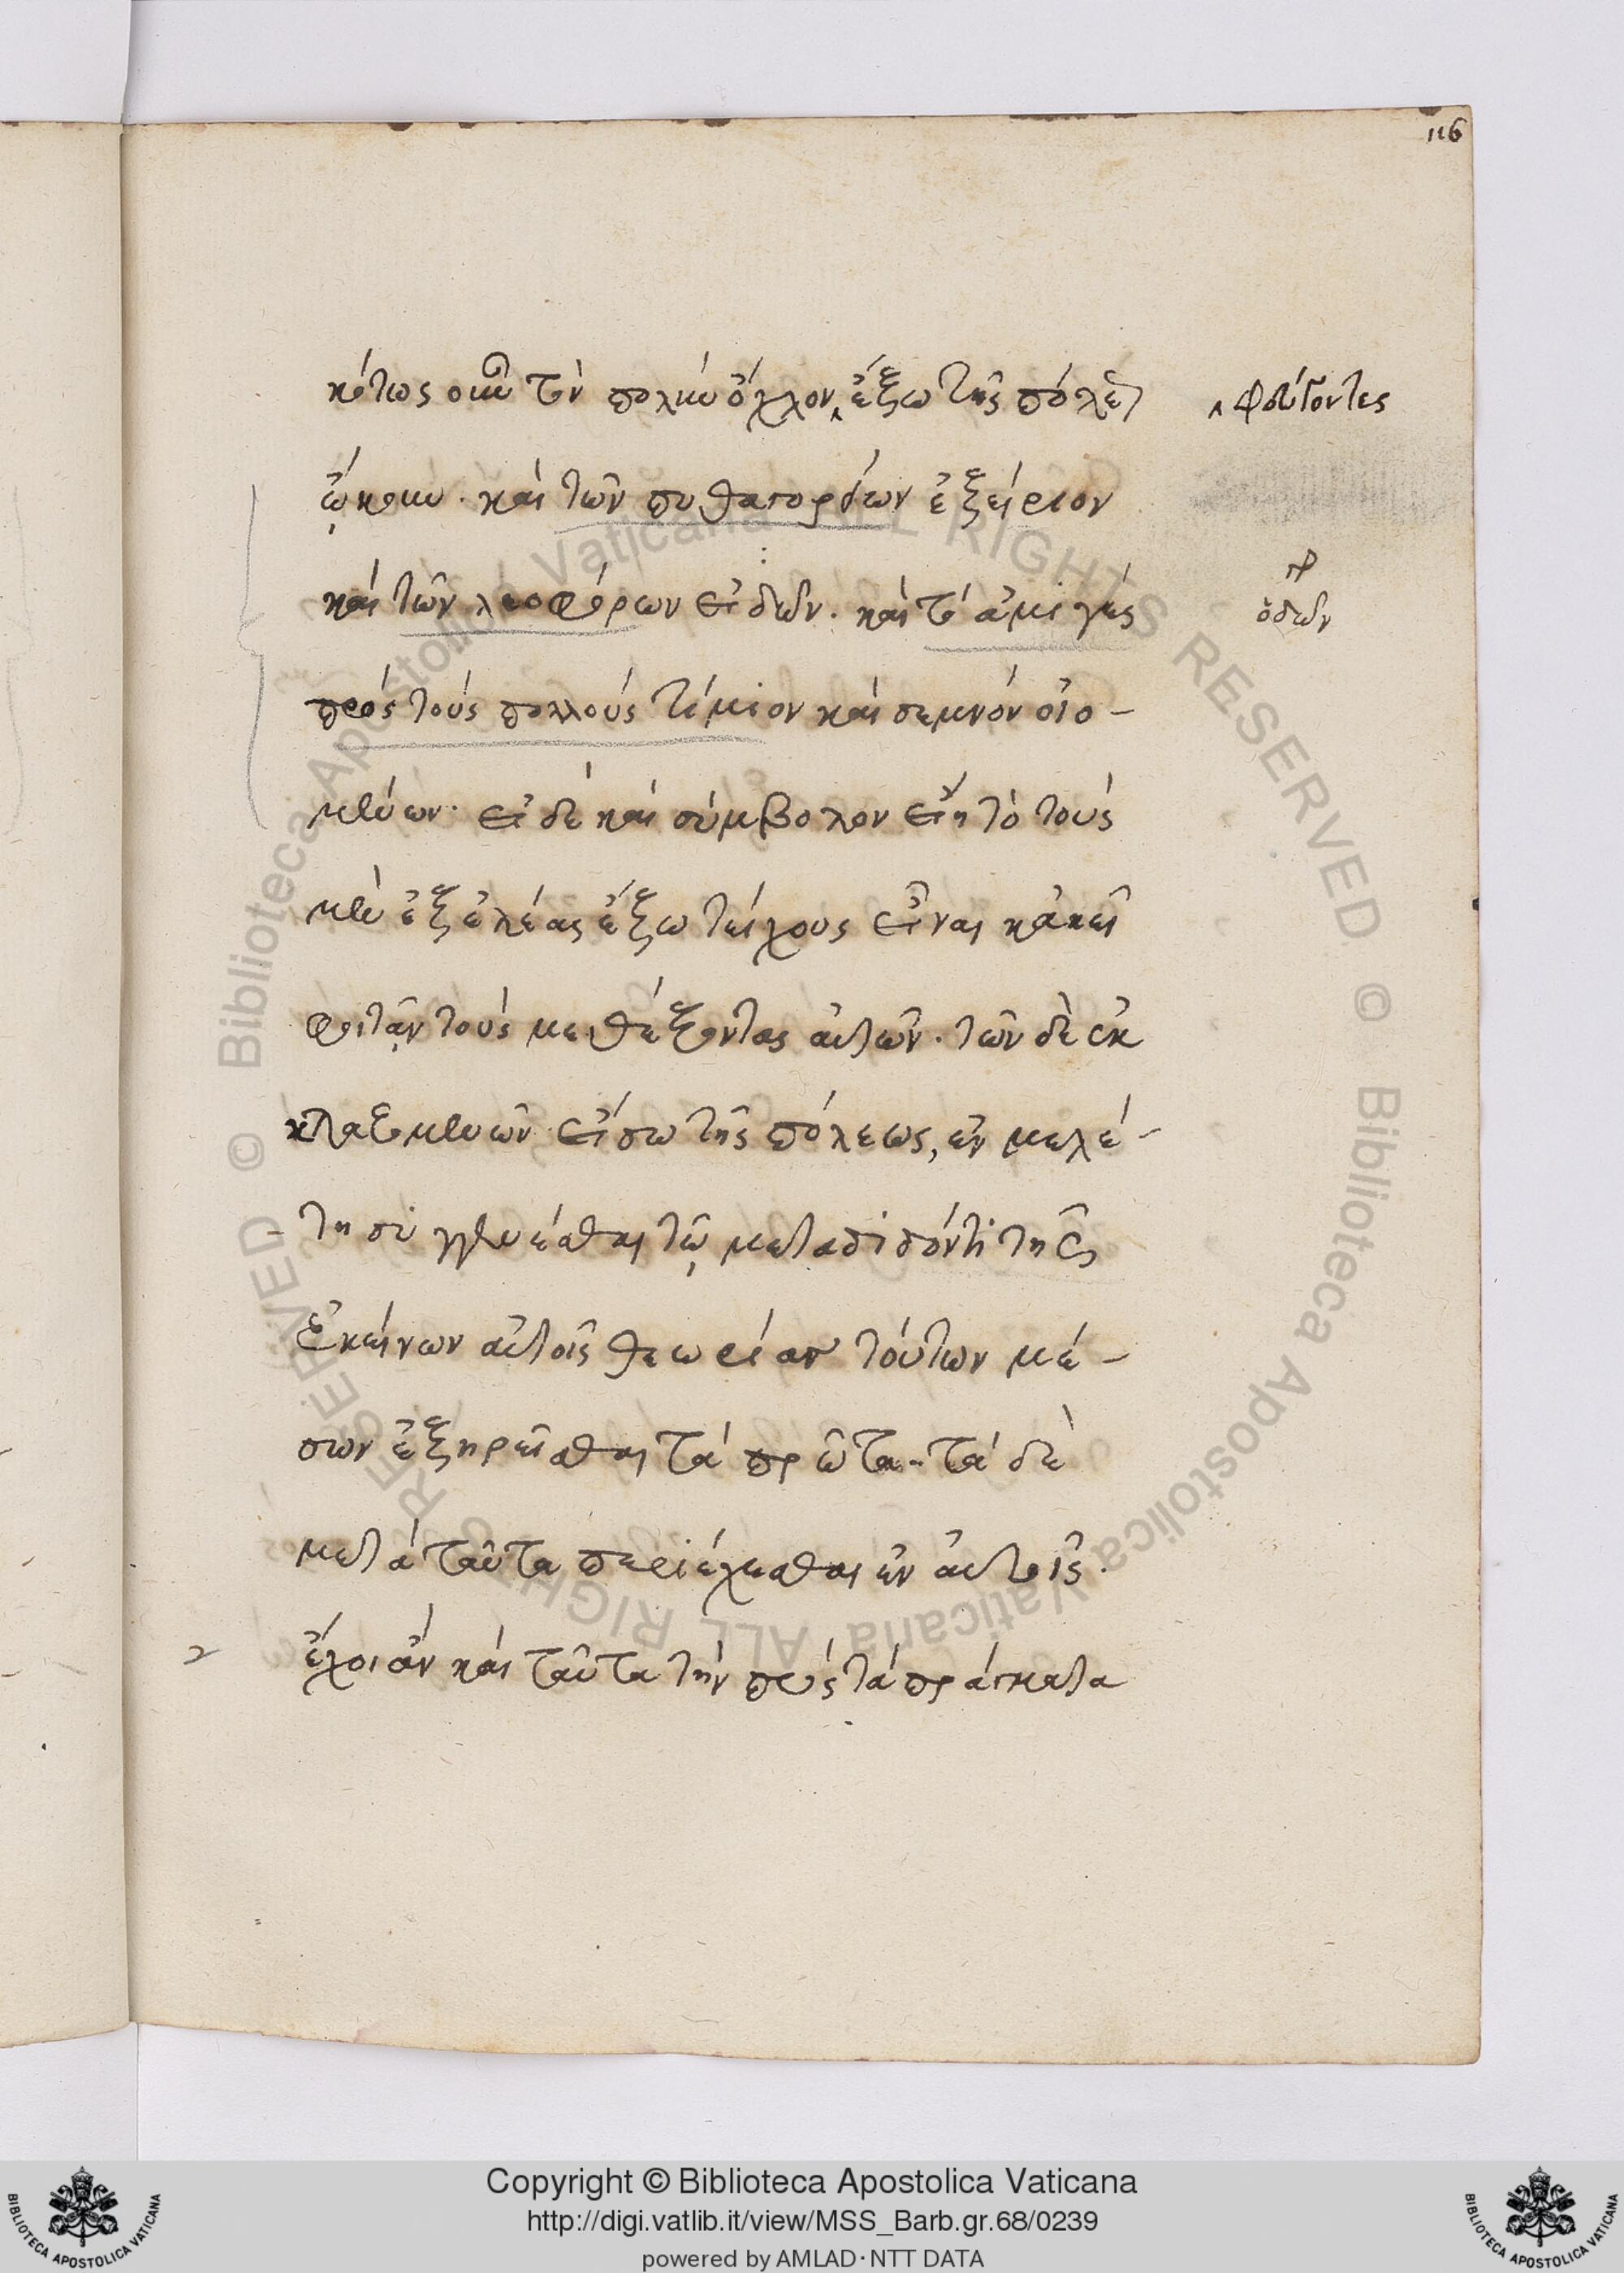 116
κότως οὖν τὸν πολὺν ὄχλον‸ ἔξω τῆς πόλεως
‸ φεύγοντες
ᾤκουν. καὶ τῶν πυθαγορείων ἐξείργον
καὶ τῶν λεοφόρων εἰδῶν. καὶ τὸ ἀμιγὲς
ὁδῶν
πρὸς τοὺς πολλοὺς τίμιον καὶ σεμνὸν οἰο-
μένων. εἰ δὲ καὶ σύμβολον εἴη τὸ τοὺς
μὲν ἐξ ἐλέας ἔξω τείχους εἶναι κἀκεῖ
φοιτᾷν τοὺς μεθέξοντας αὐτῶν. τῶν δὲ ἐκ
κλαζομενῶν εἴσω τῆς πόλεως, ἐν μελέ-
τησι γενέσθαι τῷ μεταδιδόντι τῆς
ἐκείνων αὐτοῖς θεωρίαν τούτων μέ-
σων ἐξηρεῖσθαι τὰ πρῶτα. τὰ δὲ
μετὰ ταῦτα περιέχεσθαι ἐν αὐτοῖς.
ἔχοι ἂν καὶ ταῦτα τὴν πρὸς τὰ πράγματα
Copyright © Biblioteca Apostolica Vaticana
http://digi.vatlib.it/view/MSS_Barb.gr.68/0239
powered by AMLAD · NTT DATA
BIBLIOTECA APOSTOLICA VATICANA
BIBLIOTECA APOSTOLICA VATICANA
© Biblioteca Apostolica Vaticana ALL RIGHTS RESERVED © Biblioteca Apostolica Vaticana ALL RIGHTS RESERVED